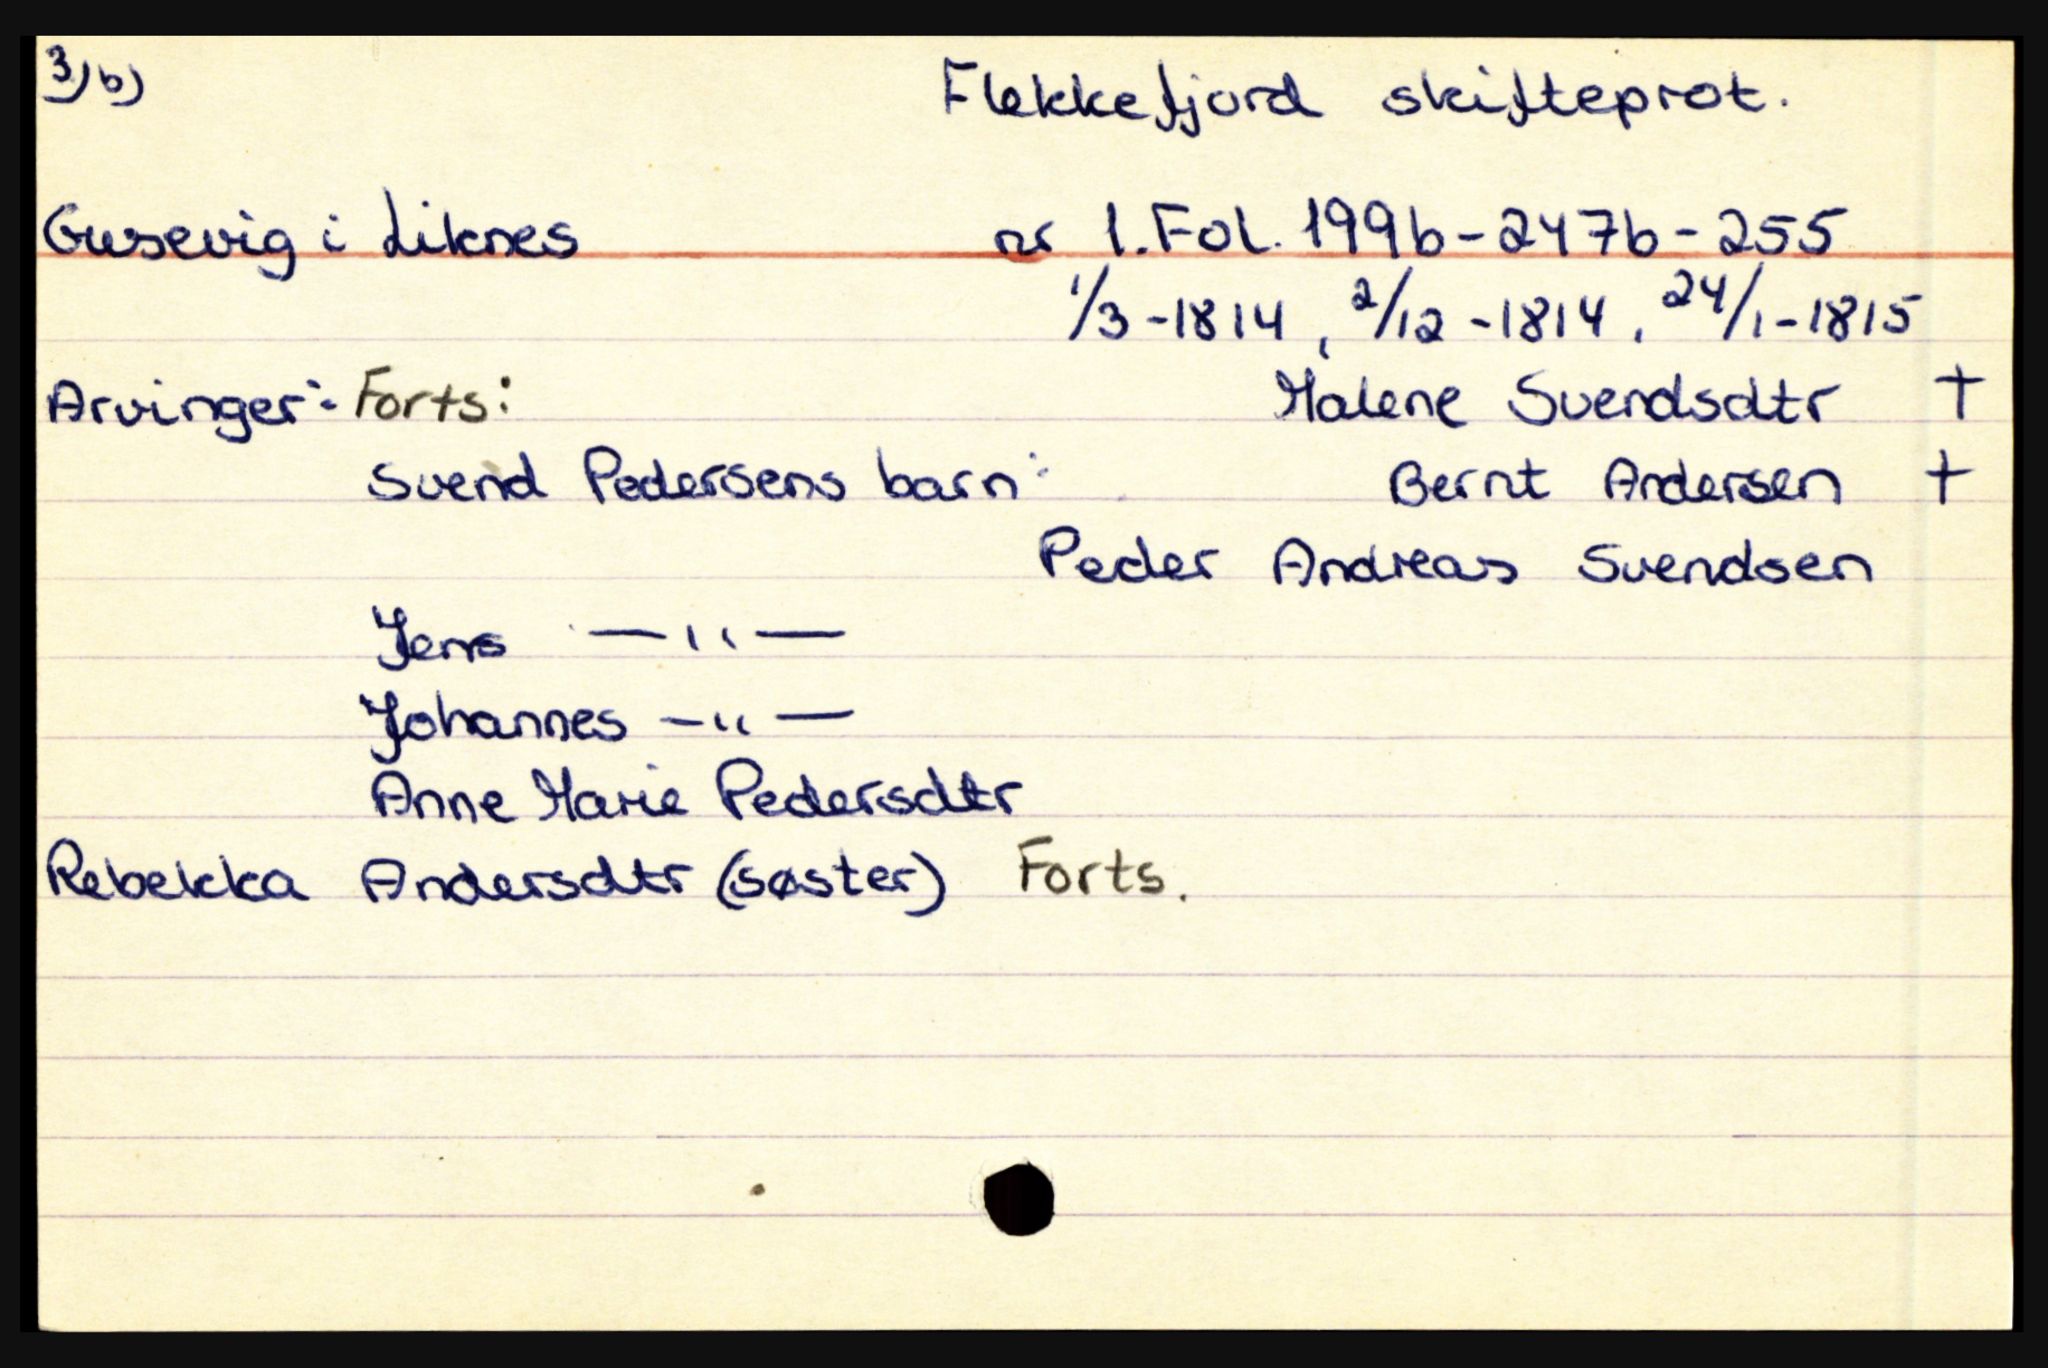 3)b)
Flekkefjord skifteprot.
Gusevig i Liknes nr 1. Fol. 199b-247b-255
1/3-1814, 2/12-1814, 24/1-1815
Arvinger: Forts: Malene Svendsdtr †
Svend Pedersens barn: Bernt Andersen †
Peder Andreas Svendsen
Jens —"—
Johannes —"—
Anne Marie Pedersdtr
Rebekka Andersdtr (søster) Forts.